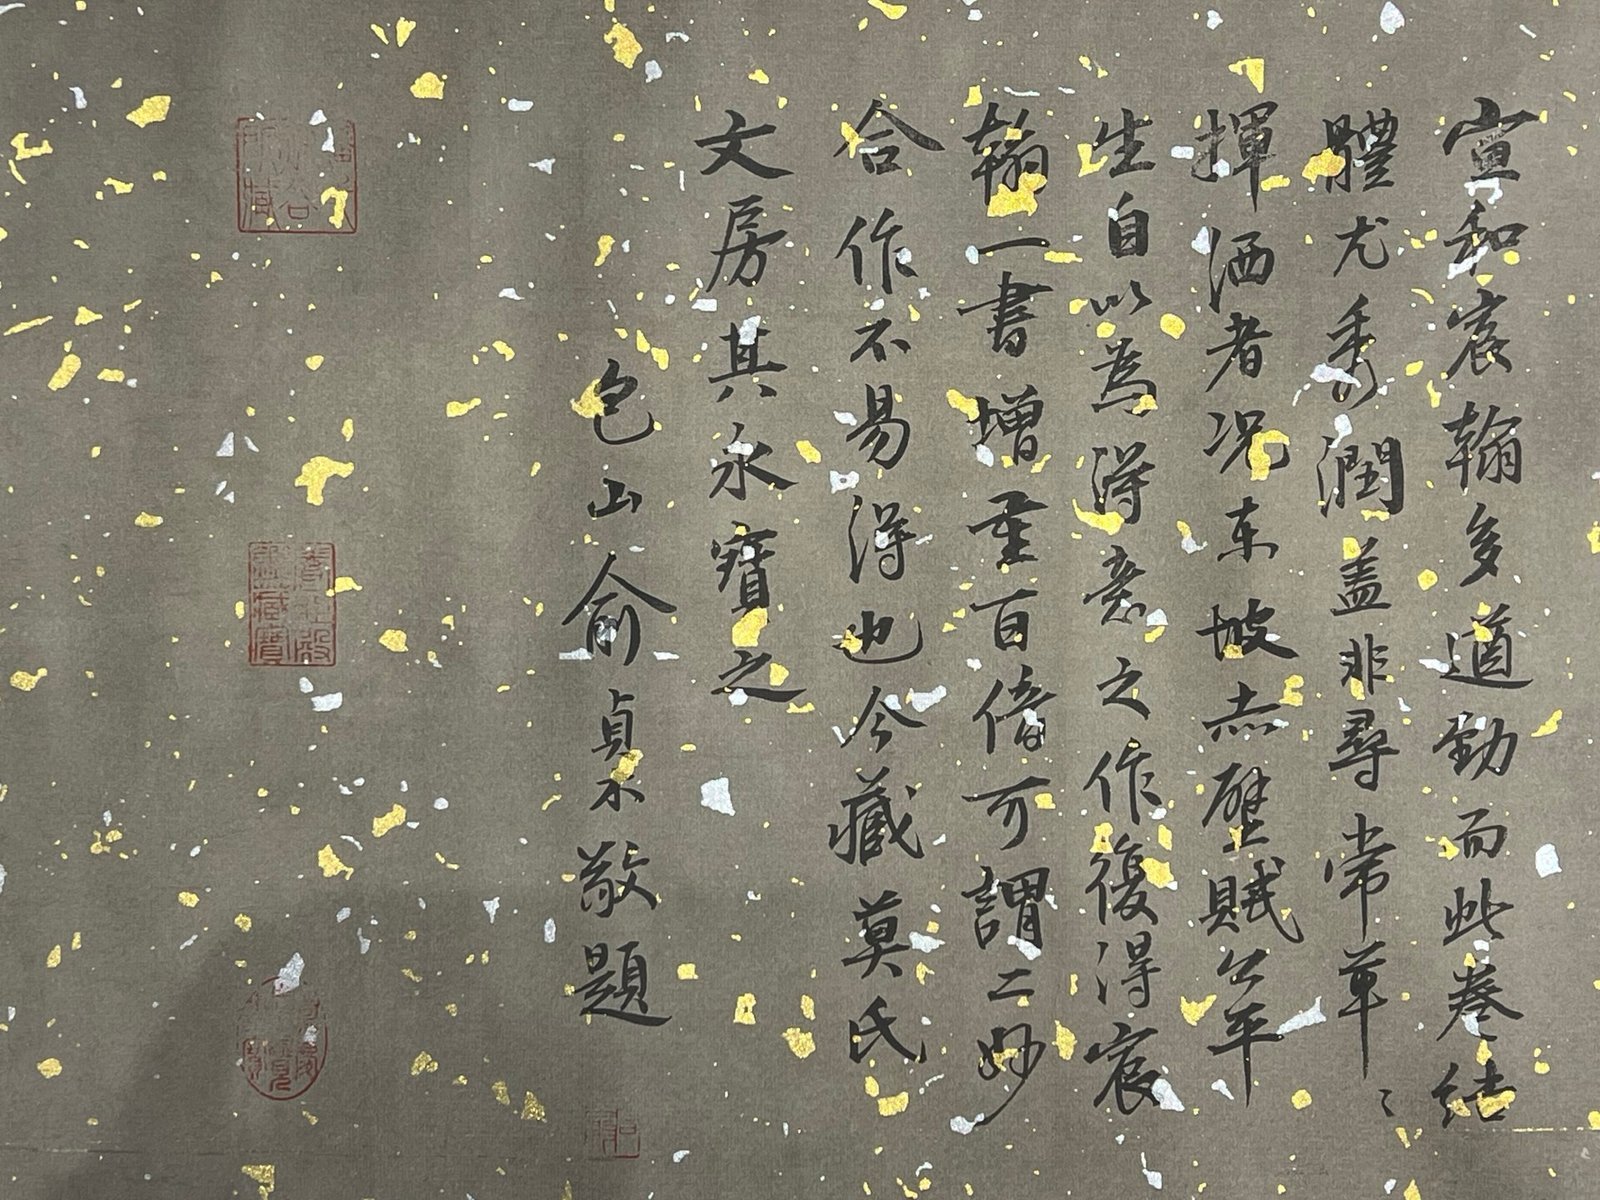 宣和宸翰多遒勁而此卷結
體尤秀潤蓋非尋常草〻
揮洒者況東坡赤壁賦公平
生自以為得意之作復得宸
翰一書增重百倍可謂二妙
合作不易得也今藏莫氏
文房其永寶之
包山俞貞木敬題